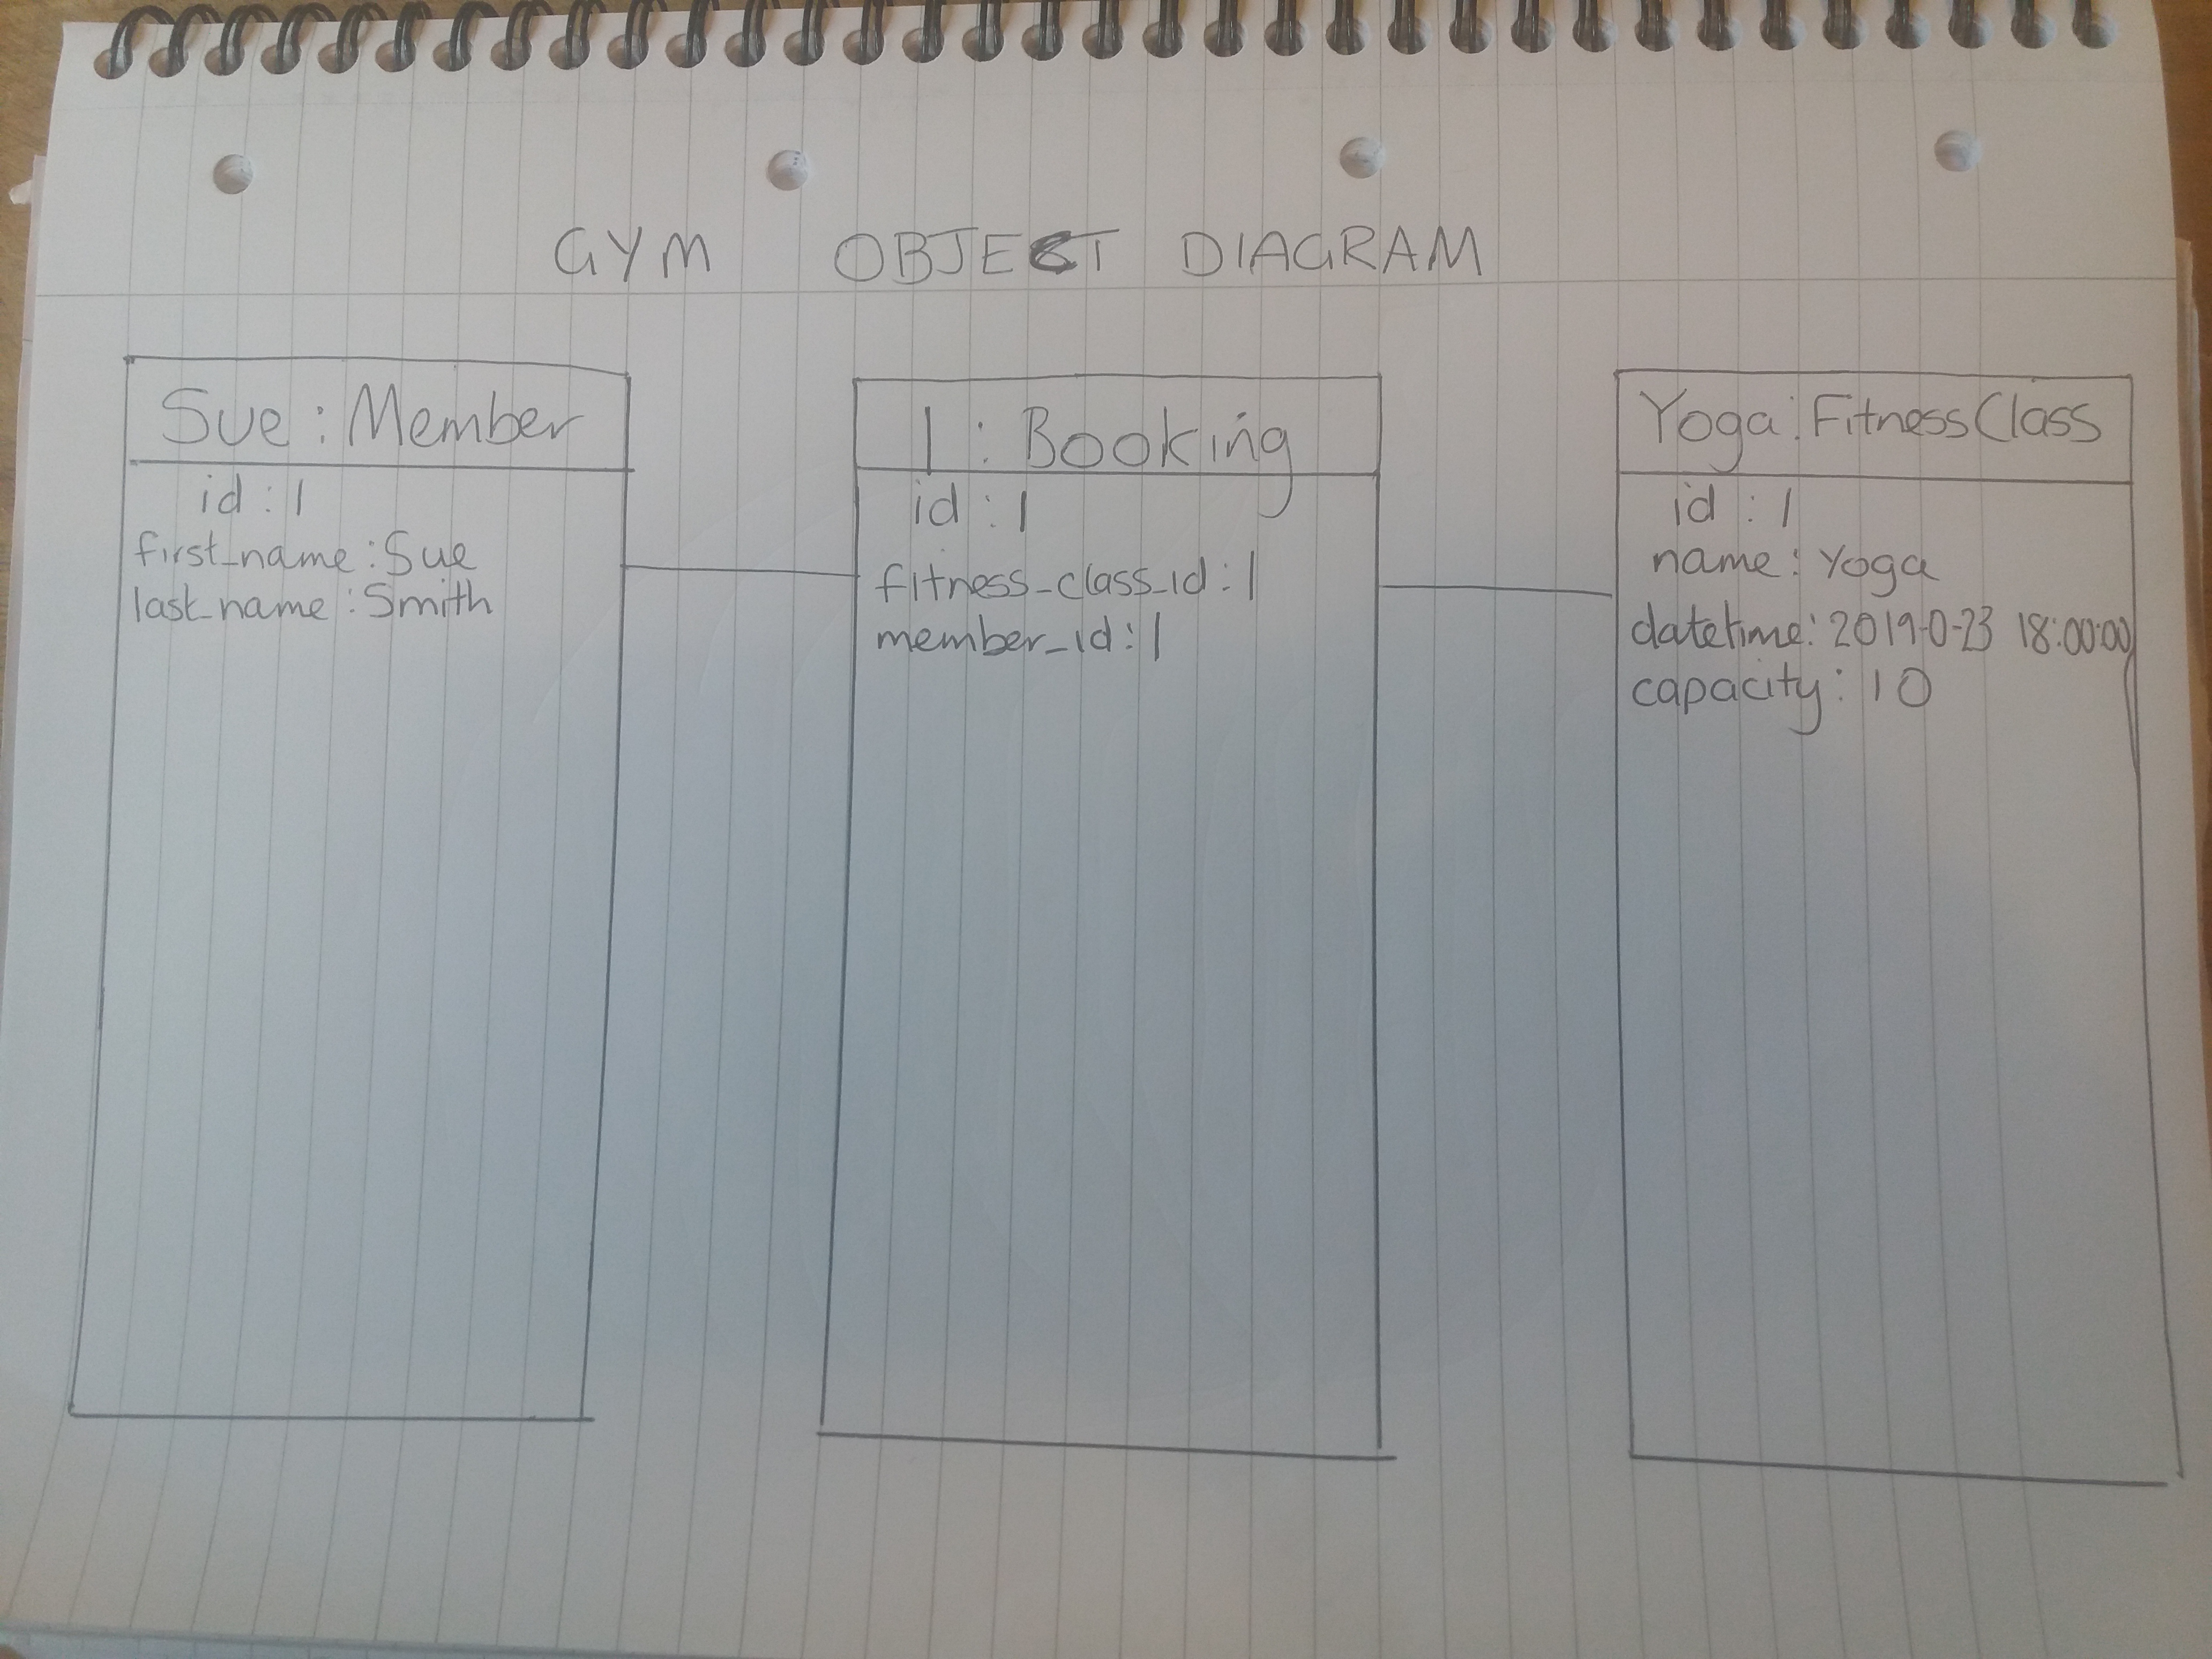 GYM OBJECT DIAGRAM
Sue : Member
id : 1
first_name : Sue
last_name : Smith
1 : Booking
id : 1
fitness_class_id : 1
member_id : 1
Yoga : FitnessClass
id : 1
name : Yoga
datetime: 2019-0-23 18:00:00
capacity : 10